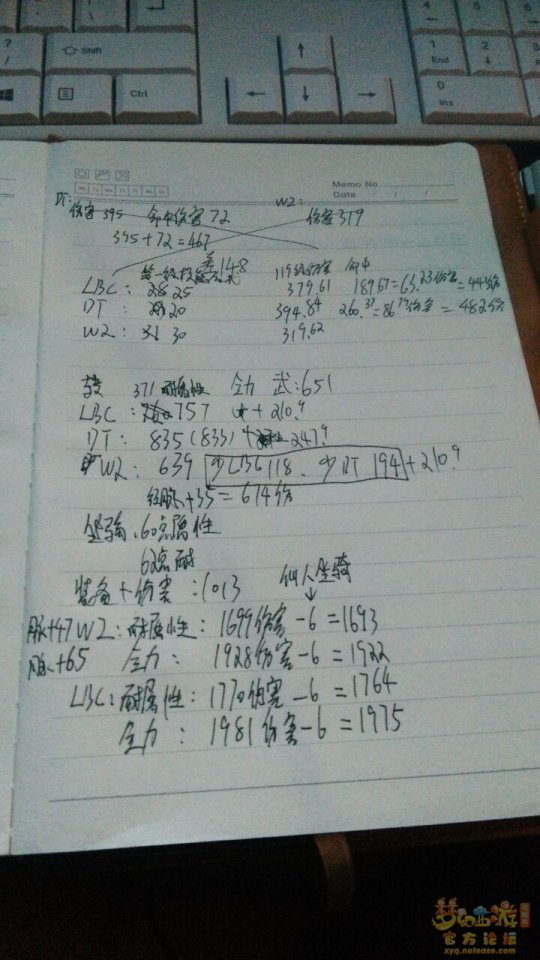 Shift
Ctrl
4
5
6
1
End
2
3
0
Ins
Memo No.
Date
DT:
伤害 395 命中伤害 72
W2:
伤害 319
395+72=467
差148
119级伤害 命中
LBC: 25 379.61 189.67=63.23伤害=443伤
DT: 20 394.84 260.37=86.79伤害=482伤
W2: 30 319.62
371耐属性 全力 武:651
LBC: 757 +210.9
DT: 835(833) +247.9
W2: 639 少LBC 118、少DT 194 +210.9
经脉+35=674伤
坐骑、60点属性
62点耐
装备+伤害:1013
仙人坐骑
脉+47 W2:耐属性:1699伤害-6=1693
脉+65 全力: 1928伤害-6=1922
LBC:耐属性:1770伤害-6=1764
全力: 1981伤害-6=1975
梦幻西游
官方论坛
xyq.netease.com